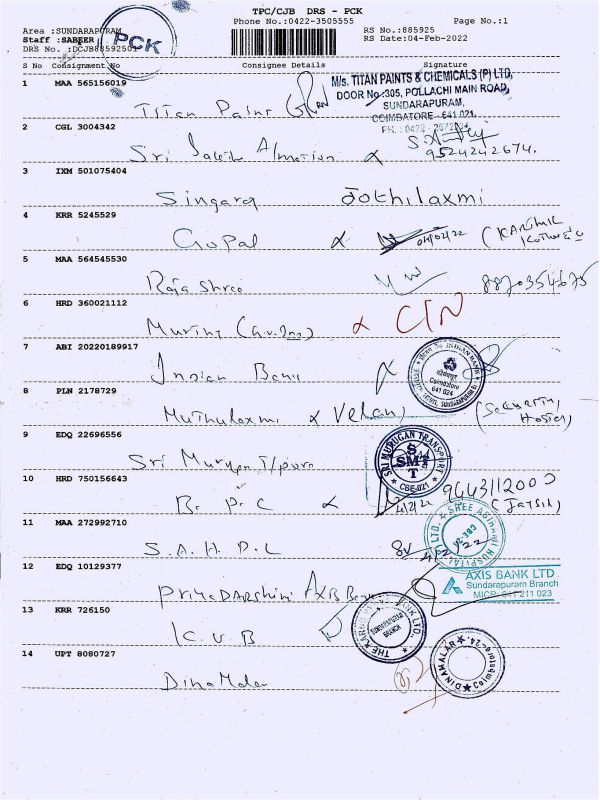 TPC/CJB DRS - PCK
Phone No.:0422-3505555
Page No.:1
Area :SUNDARAPURAM
Staff :SABEER
DRS No. :DCJB88592501
PCK
RS No.:885925
RS Date:04-Feb-2022
S No Consignment No Consignee Details Signature
1 MAA 565156019
Titan Paint
M/s. TITAN PAINTS & CHEMICALS (P) LTD,
DOOR No.:305, POLLACHI MAIN ROAD,
SUNDARAPURAM,
COIMBATORE - 641 021.
2 CGL 3004342
Sri
9524242674.
3 IXM 501075404
Singaraj Jothilaxmi
4 KRR 5245529
Gopal 04/02/22
5 MAA 564545530
Raja Shree
6 HRD 360021112
7 ABI 20220189917
Indian Bank
INDIAN BANK
Coimbatore
641 024
8 PLN 2178729
Muthulaxmi Velan (Security
Hostel)
9 EDQ 22696556
Sri Murugan T/pura
SRI MURUGAN TRANSPORT
SMT
CBE-021
10 HRD 750156643
B. P. C 4/2/22 9443112000
11 MAA 272992710
S. A. H. D. L 4/2/22
HOSPITAL LTD.
12 EDQ 10129377
PriyaDARShini Axis Bank
AXIS BANK LTD
Sundarapuram Branch
MICR 641 211 023
13 KRR 726150
K.U.B
SUNDARAPURAM
BRANCH
14 UPT 8080727
Dina Malar
DINAMALAR
Coimbatore-24.